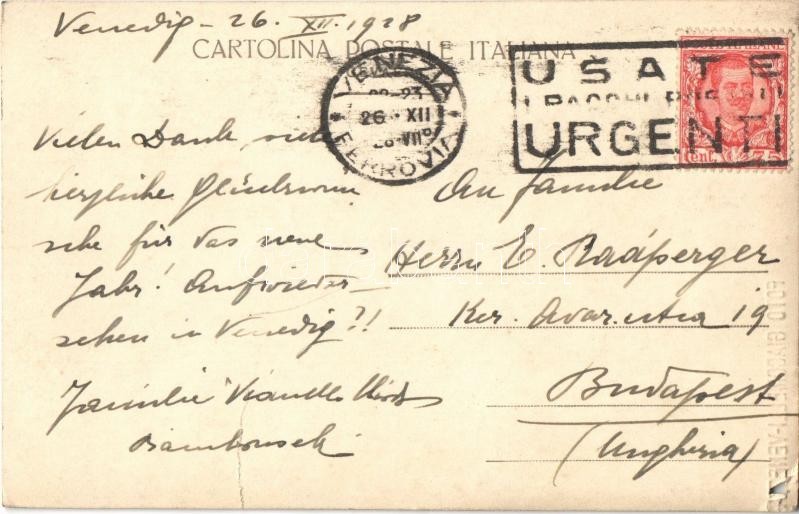 Venedig - 26. XII. 1928
CARTOLINA POSTALE ITALIANA
VENEZIA
22-23
26 XII
28-VII°
FERROVIA
USATE
I PACCHI
URGENTI
Cent. 75
Vielen Dank, viele
herzliche Glückwün
sche für das neue
Jahr! Aufwieder-
sehen in Venedig?!
Familie
An Familie
Herrn E.
Ker. 19
Budapest
(Ungheria)